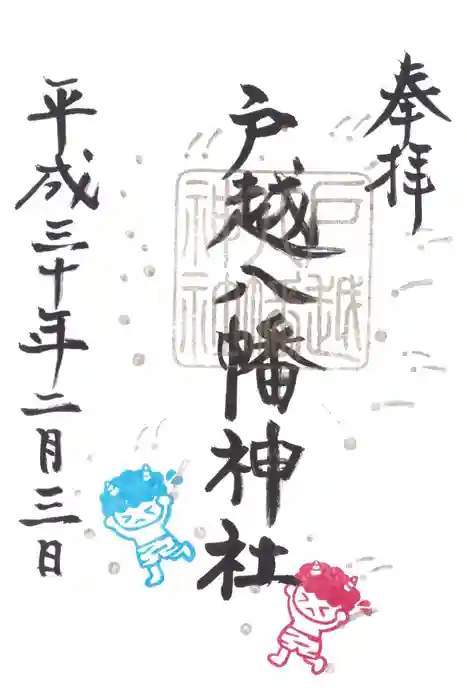 奉拝
戸越八幡神社
戸越
八幡
神社
平成三十年二月三日